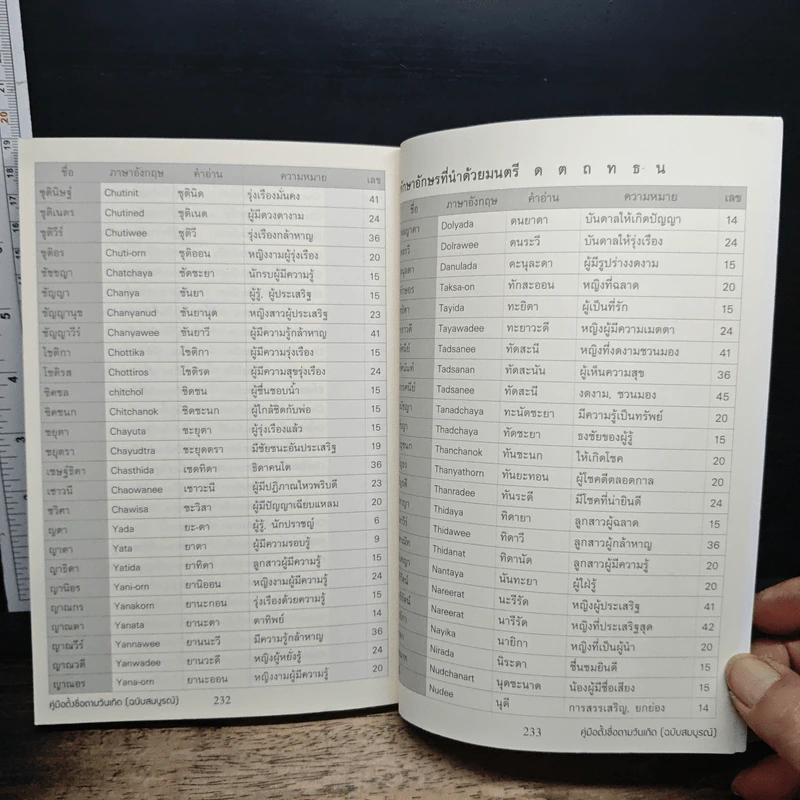 ชื่อ ภาษาอังกฤษ คำอ่าน ความหมาย เลข
ชุตินิษฐ์ Chutinit ชุตินิด รุ่งเรืองมั่นคง 41
ชุติเนตร Chutined ชุติเนด ผู้มีดวงตางาม 24
ชุติวีร์ Chutiwee ชุติวี รุ่งเรืองกล้าหาญ 36
ชุติอร Chuti-orn ชุติออน หญิงงามผู้รุ่งเรือง 20
ชัชชญา Chatchaya ชัดชะยา นักรบผู้มีความรู้ 15
ชัญญา Chanya ชันยา ผู้รู้, ผู้ประเสริฐ 15
ชัญญานุช Chanyanud ชันยานุด หญิงสาวผู้ประเสริฐ 23
ชัญญาวีร์ Chanyawee ชันยาวี ผู้มีความรู้กล้าหาญ 41
โชติกา Chottika โชติกา ผู้มีความรุ่งเรือง 15
โชติรส Chottiros โชติรด ผู้มีความสุขรุ่งเรือง 24
ชิดชล chitchol ชิดชน ผู้ชื่นชอบน้ำ 15
ชิดชนก Chitchanok ชิดชะนก ผู้ใกล้ชิดกับพ่อ 15
ชยุตา Chayuta ชะยุตา ผู้รุ่งเรืองแล้ว 15
ชยุตรา Chayudtra ชะยุดตรา มีชัยชนะอันประเสริฐ 19
เชษฐ์ธิดา Chasthida เชดทิดา ธิดาคนโต 36
เชาวนี Chaowanee เชาวะนี ผู้มีปฏิภาณไหวพริบดี 23
ชวิศา Chawisa ชะวิสา ผู้มีปัญญาเฉียบแหลม 20
ญดา Yada ยะ-ดา ผู้รู้ นักปราชญ์ 6
ญาตา Yata ยาตา ผู้มีความรอบรู้ 9
ญาธิดา Yatida ยาทิดา ลูกสาวผู้มีความรู้ 15
ญานิอร Yani-orn ยานิออน หญิงงามผู้มีความรู้ 24
ญาณกร Yanakorn ยานะกอน รุ่งเรืองด้วยความรู้ 15
ญาณดา Yanata ยานะดา ตาทิพย์ 14
ญาณวีร์ Yannawee ยานนะวี มีความรู้กล้าหาญ 36
ญาณวดี Yanwadee ยานะวะดี หญิงผู้หยั่งรู้ 24
ญาณอร Yana-orn ยานะออน หญิงงามผู้มีความรู้ 20
คู่มือตั้งชื่อตามวันเกิด (ฉบับสมบูรณ์) 232
อักษาอักษรที่นำด้วยมนตรี ด ต ถ ท ธ น
ชื่อ ภาษาอังกฤษ คำอ่าน ความหมาย เลข
Dolyada ดนยาดา บันดาลให้เกิดปัญญา 14
Dolrawee ดนระวี บันดาลให้รุ่งเรือง 24
Danulada ดะนุละดา ผู้มีรูปร่างงดงาม 15
Taksa-on ทักสะออน หญิงที่ฉลาด 20
Tayida ทะยิดา ผู้เป็นที่รัก 15
Tayawadee ทะยาวะดี หญิงผู้มีความเมตตา 24
Tadsanee ทัดสะนี หญิงที่งดงามชวนมอง 41
Tadsanan ทัดสะนัน ผู้เห็นความสุข 36
Tadsanee ทัดสะนี งดงาม, ชวนมอง 45
Tanadchaya ทะนัดชะยา มีความรู้เป็นทรัพย์ 20
Thadchaya ทัดชะยา ธงชัยของผู้รู้ 15
Thanchanok ทันชะนก ให้เกิดโชค 20
Thanyathorn ทันยะทอน ผู้โชคดีตลอดกาล 20
Thanradee ทันระดี มีโชคที่น่ายินดี 24
Thidaya ทิดายา ลูกสาวผู้ฉลาด 15
Thidawee ทิดาวี ลูกสาวผู้กล้าหาญ 36
Thidanat ทิดานัด ลูกสาวผู้มีความรู้ 20
Nantaya นันทะยา ผู้ใฝ่รู้ 20
Nareerat นะรีรัด หญิงผู้ประเสริฐ 41
Nareerat นารีรัด หญิงที่ประเสริฐสุด 42
Nayika นายิกา หญิงที่เป็นผู้นำ 20
Nirada นิระดา ชื่นชมยินดี 15
Nudchanart นุดชะนาด น้องผู้มีชื่อเสียง 15
Nudee นุดี การสรรเสริญ, ยกย่อง 14
233 คู่มือตั้งชื่อตามวันเกิด (ฉบับสมบูรณ์)